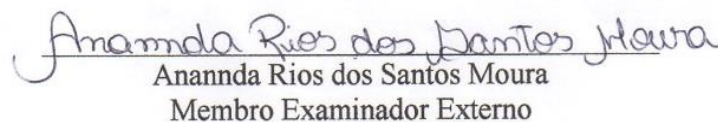 Anannda Rios dos Santos Moura
Anannda Rios dos Santos Moura
Membro Examinador Externo